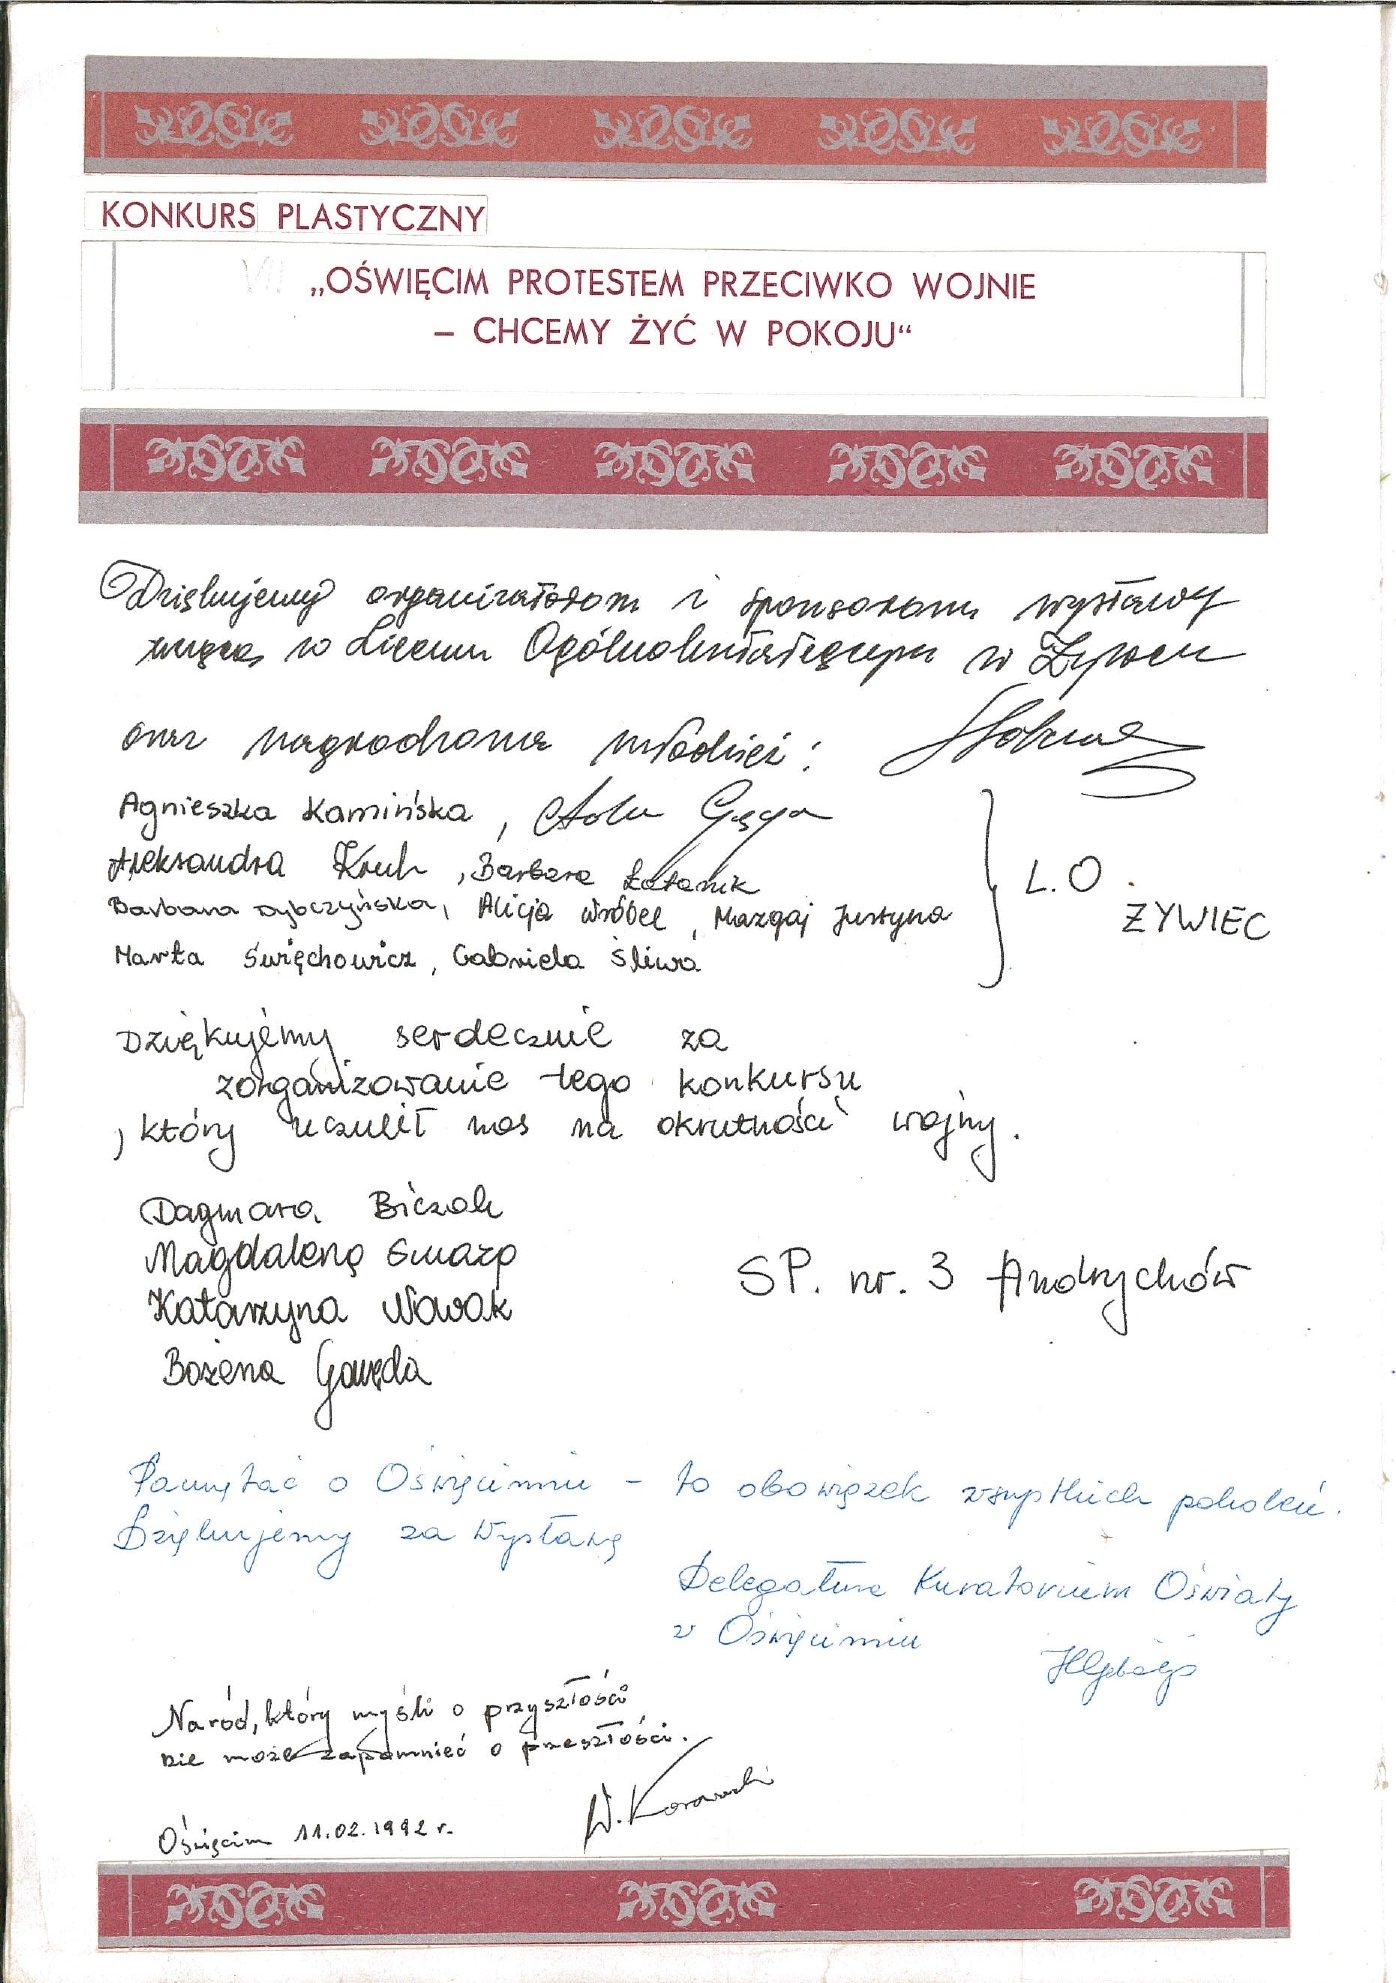 KONKURS PLASTYCZNY
VII „OŚWIĘCIM PROTESTEM PRZECIWKO WOJNIE
– CHCEMY ŻYĆ W POKOJU“
Dziękujemy organizatorom i sponsorom wystawy
w Liceum Ogólnokształcącym w Żywcu
oraz nagrodzona młodzież:
Agnieszka Kamińska,
Aleksandra Kruk, Barbara Łatanik
Barbara Dybczyńska, Alicja Wróbel, Mazgaj Justyna
Marta Święchowicz, Gabriela Śliwa
L.O
ŻYWIEC
Dziękujemy serdecznie za
zorganizowanie tego konkursu
, który uczulił nas na okrutności wojny.
Dagmara Biczak
Magdalena
Katarzyna Nowak
Bożena Gawęda
SP. nr. 3 Andrychów
Pamiętać o Oświęcimiu – to obowiązek wszystkich pokoleń.
Dziękujemy za wystawę
Delegatura Kuratorium Oświaty
w Oświęcimiu
Naród, który myśli o przyszłości
nie może zapomnieć o przeszłości.
Oświęcim 11.02.1992 r.